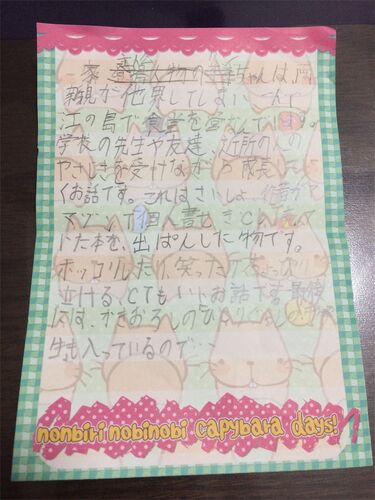 登場人物の ちゃんは、両
親が他界してしまい
江の島で食堂を営なんで
学校の先生や友達、近所の人の
やさしさを受けながら成長して
くお話です。これはさいしょ、作者がア
マゾンで個人書せきとして
いた本を、出ぱんした物です。
ホッコリしたり、笑ったり
泣ける、とてもいいお話です。最後
には、かきおろしの
も入っているので、
nonbiri nobinobi capybara days!